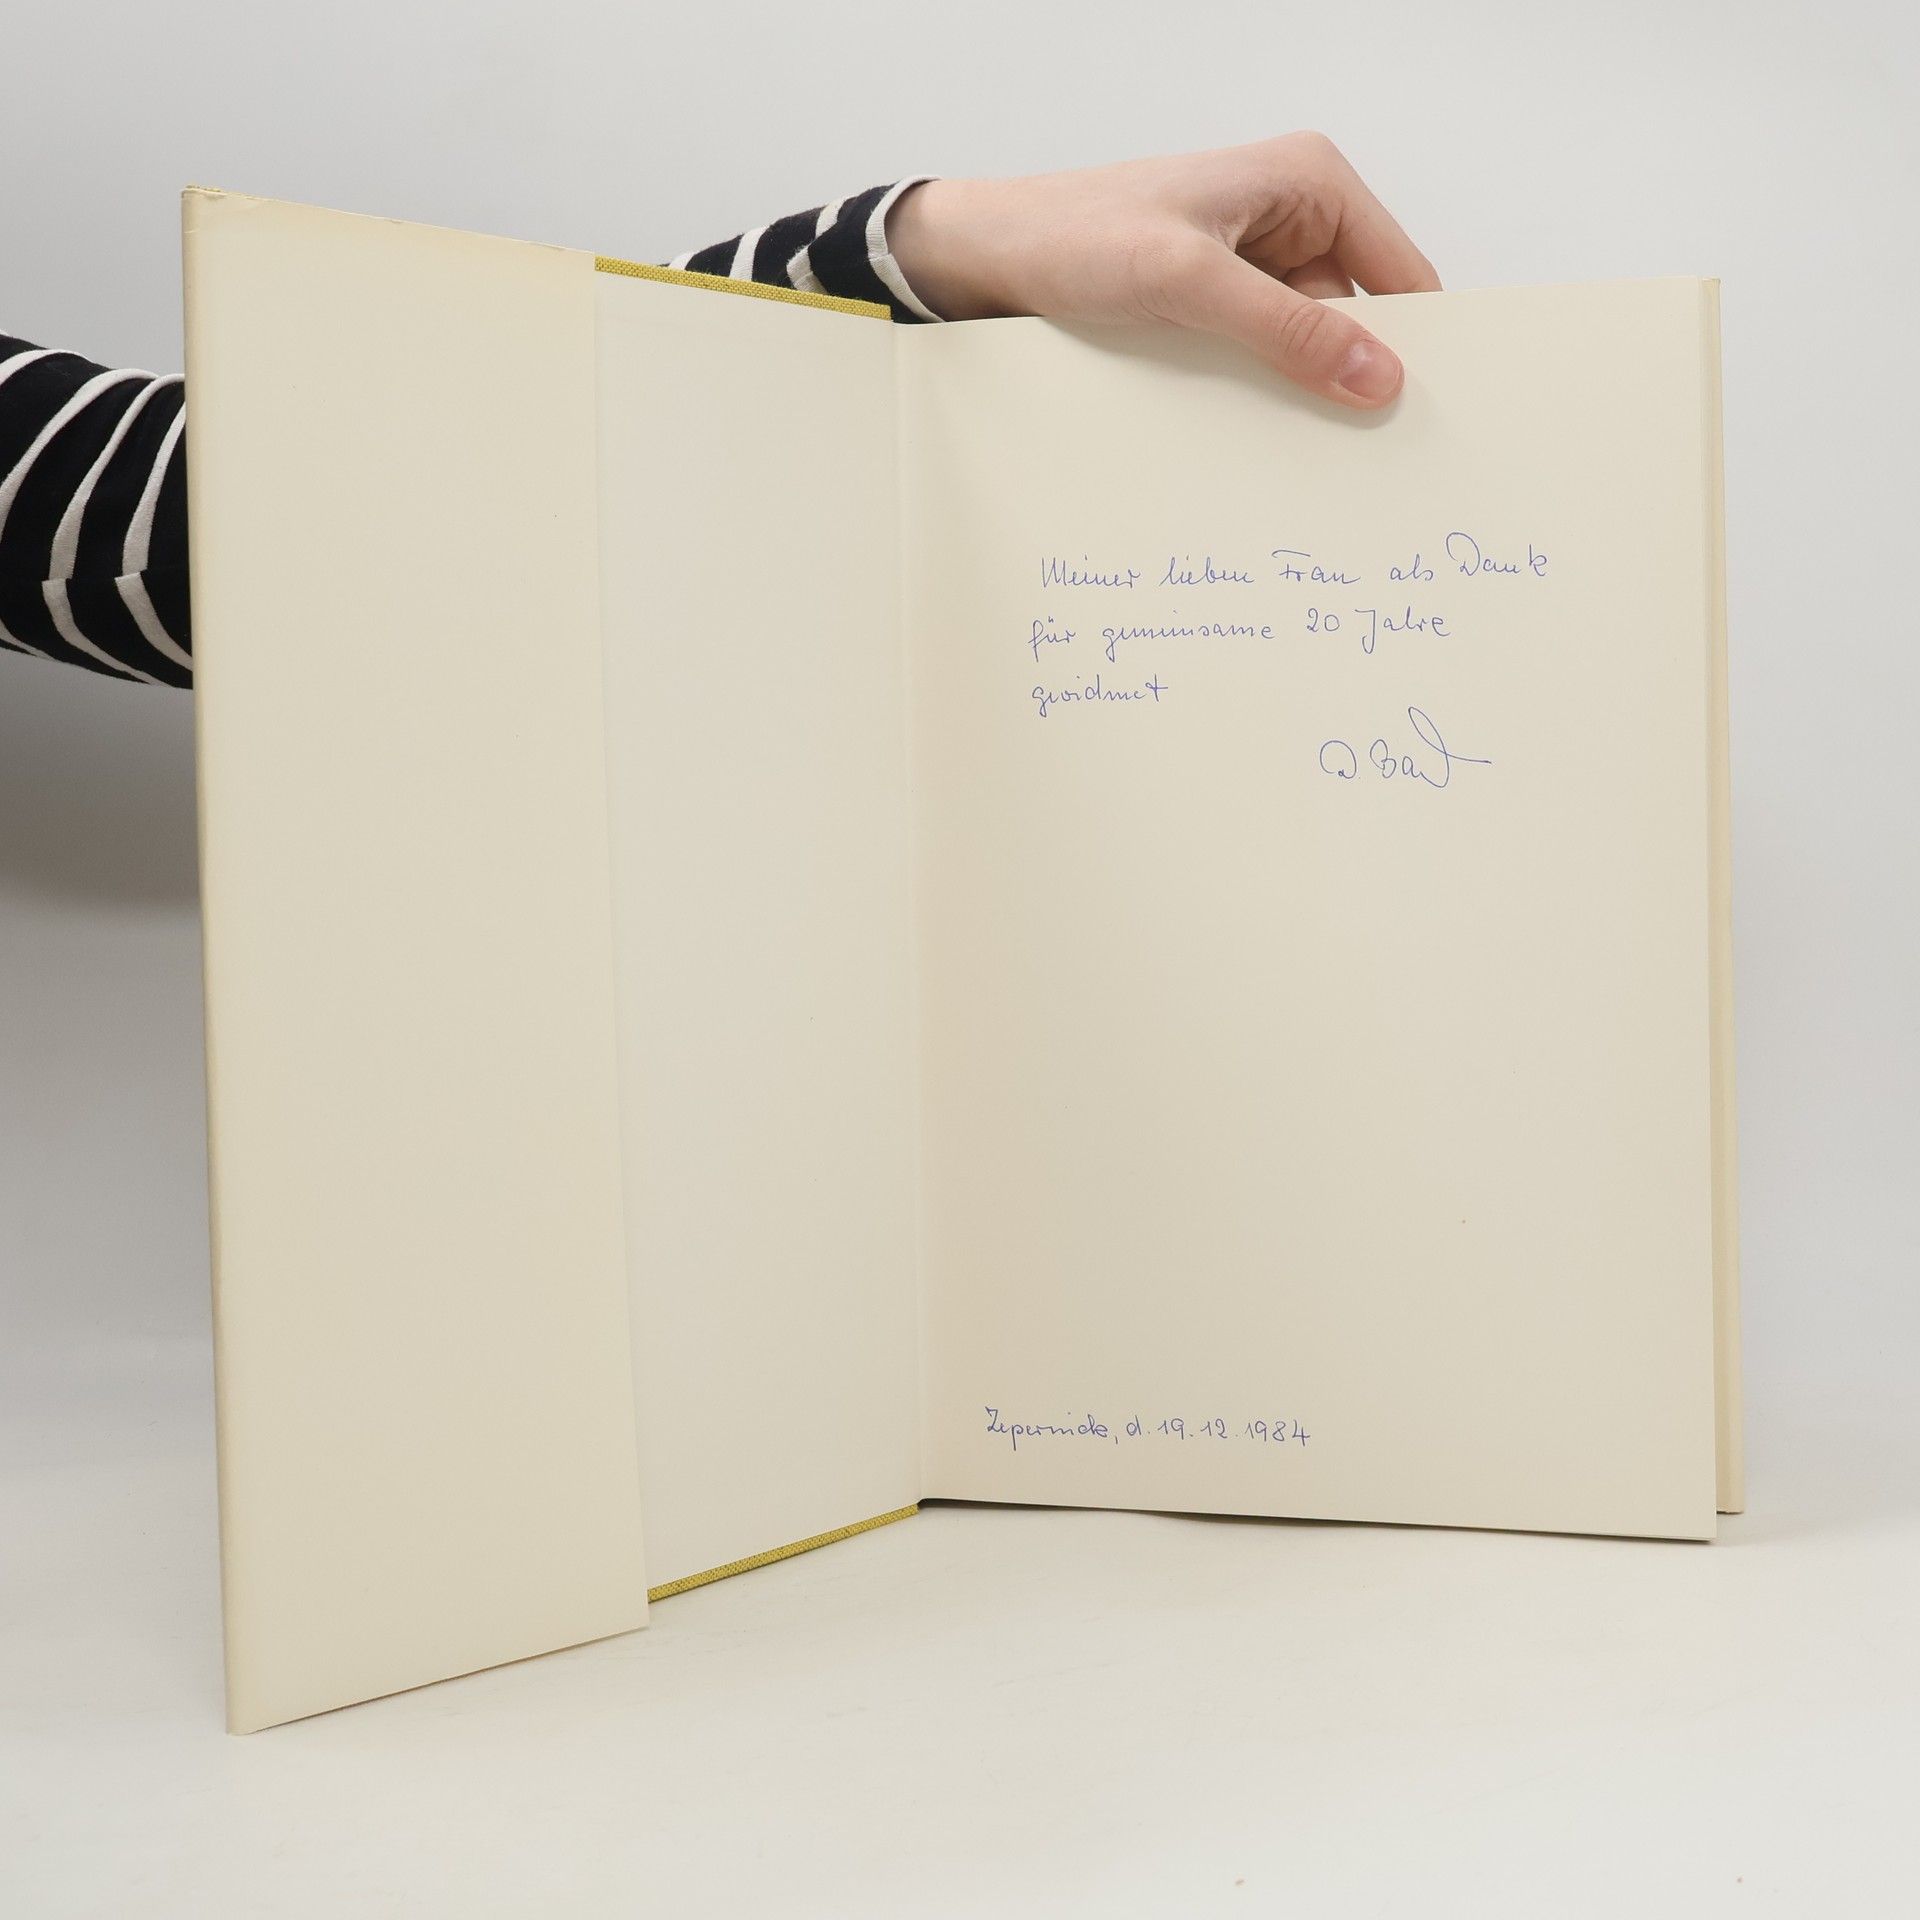 Meiner lieben Frau als Dank
für gemeinsame 20 Jahre
gewidmet
D.
Zepernick, d. 19.12.1984